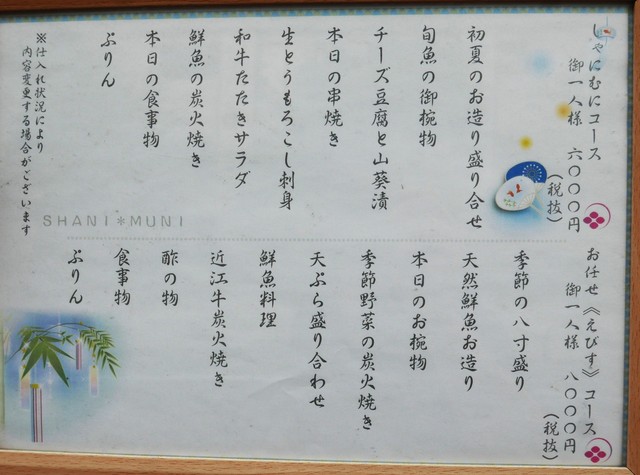 しゃにむにコース
御一人様 六〇〇〇円
(税抜)
初夏のお造り盛り合せ
旬魚の御椀物
チーズ豆腐と山葵漬
本日の串焼き
生とうもろこし刺身
和牛たたきサラダ
鮮魚の炭火焼き
本日の食事物
ぷりん
※仕入れ状況により
内容変更する場合がございます
SHANI*MUNI
お任せ《えびす》コース
御一人様 八〇〇〇円
(税抜)
季節の八寸盛り
天然鮮魚お造り
本日のお椀物
季節野菜の炭火焼き
天ぷら盛り合わせ
鮮魚料理
近江牛炭火焼き
酢の物
食事物
ぷりん